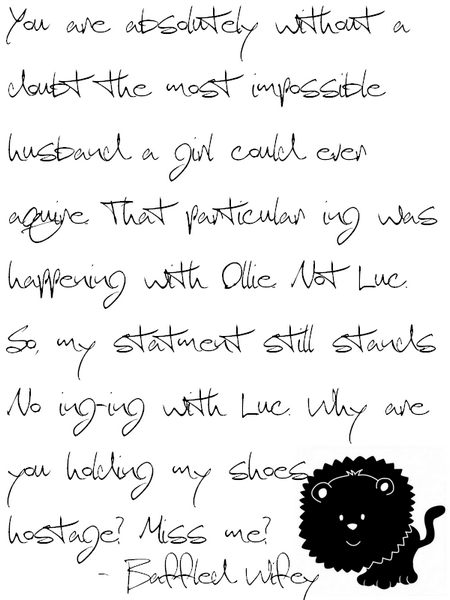 You are absolutely without a
doubt the most impossible
husband a girl could ever
aquire. That particular ing was
happening with Ollie. Not Luc.
So, my statment still stands
No ing-ing with Luc. Why are
you holding my shoes
hostage? Miss me?
- Baffled Wifey